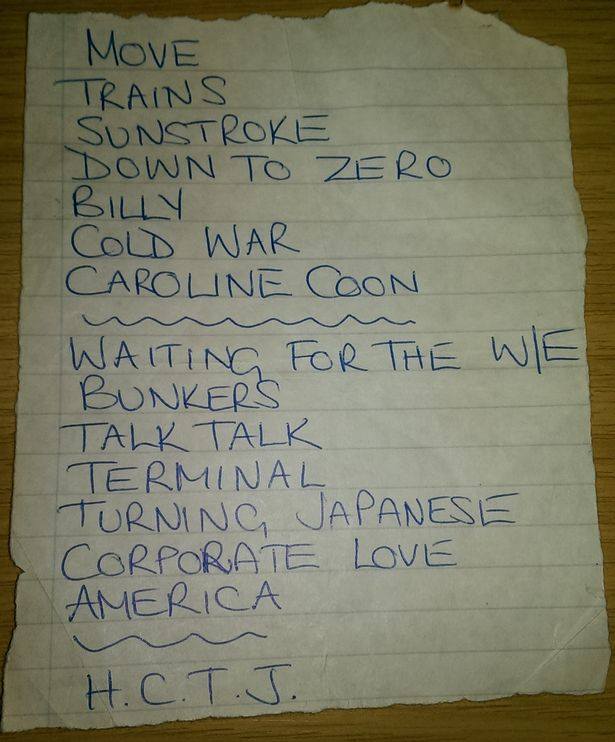 MOVE
TRAINS
SUNSTROKE
DOWN TO ZERO
BILLY
COLD WAR
CAROLINE COON
WAITING FOR THE W/E
BUNKERS
TALK TALK
TERMINAL
TURNING JAPANESE
CORPORATE LOVE
AMERICA
H.C.T.J.